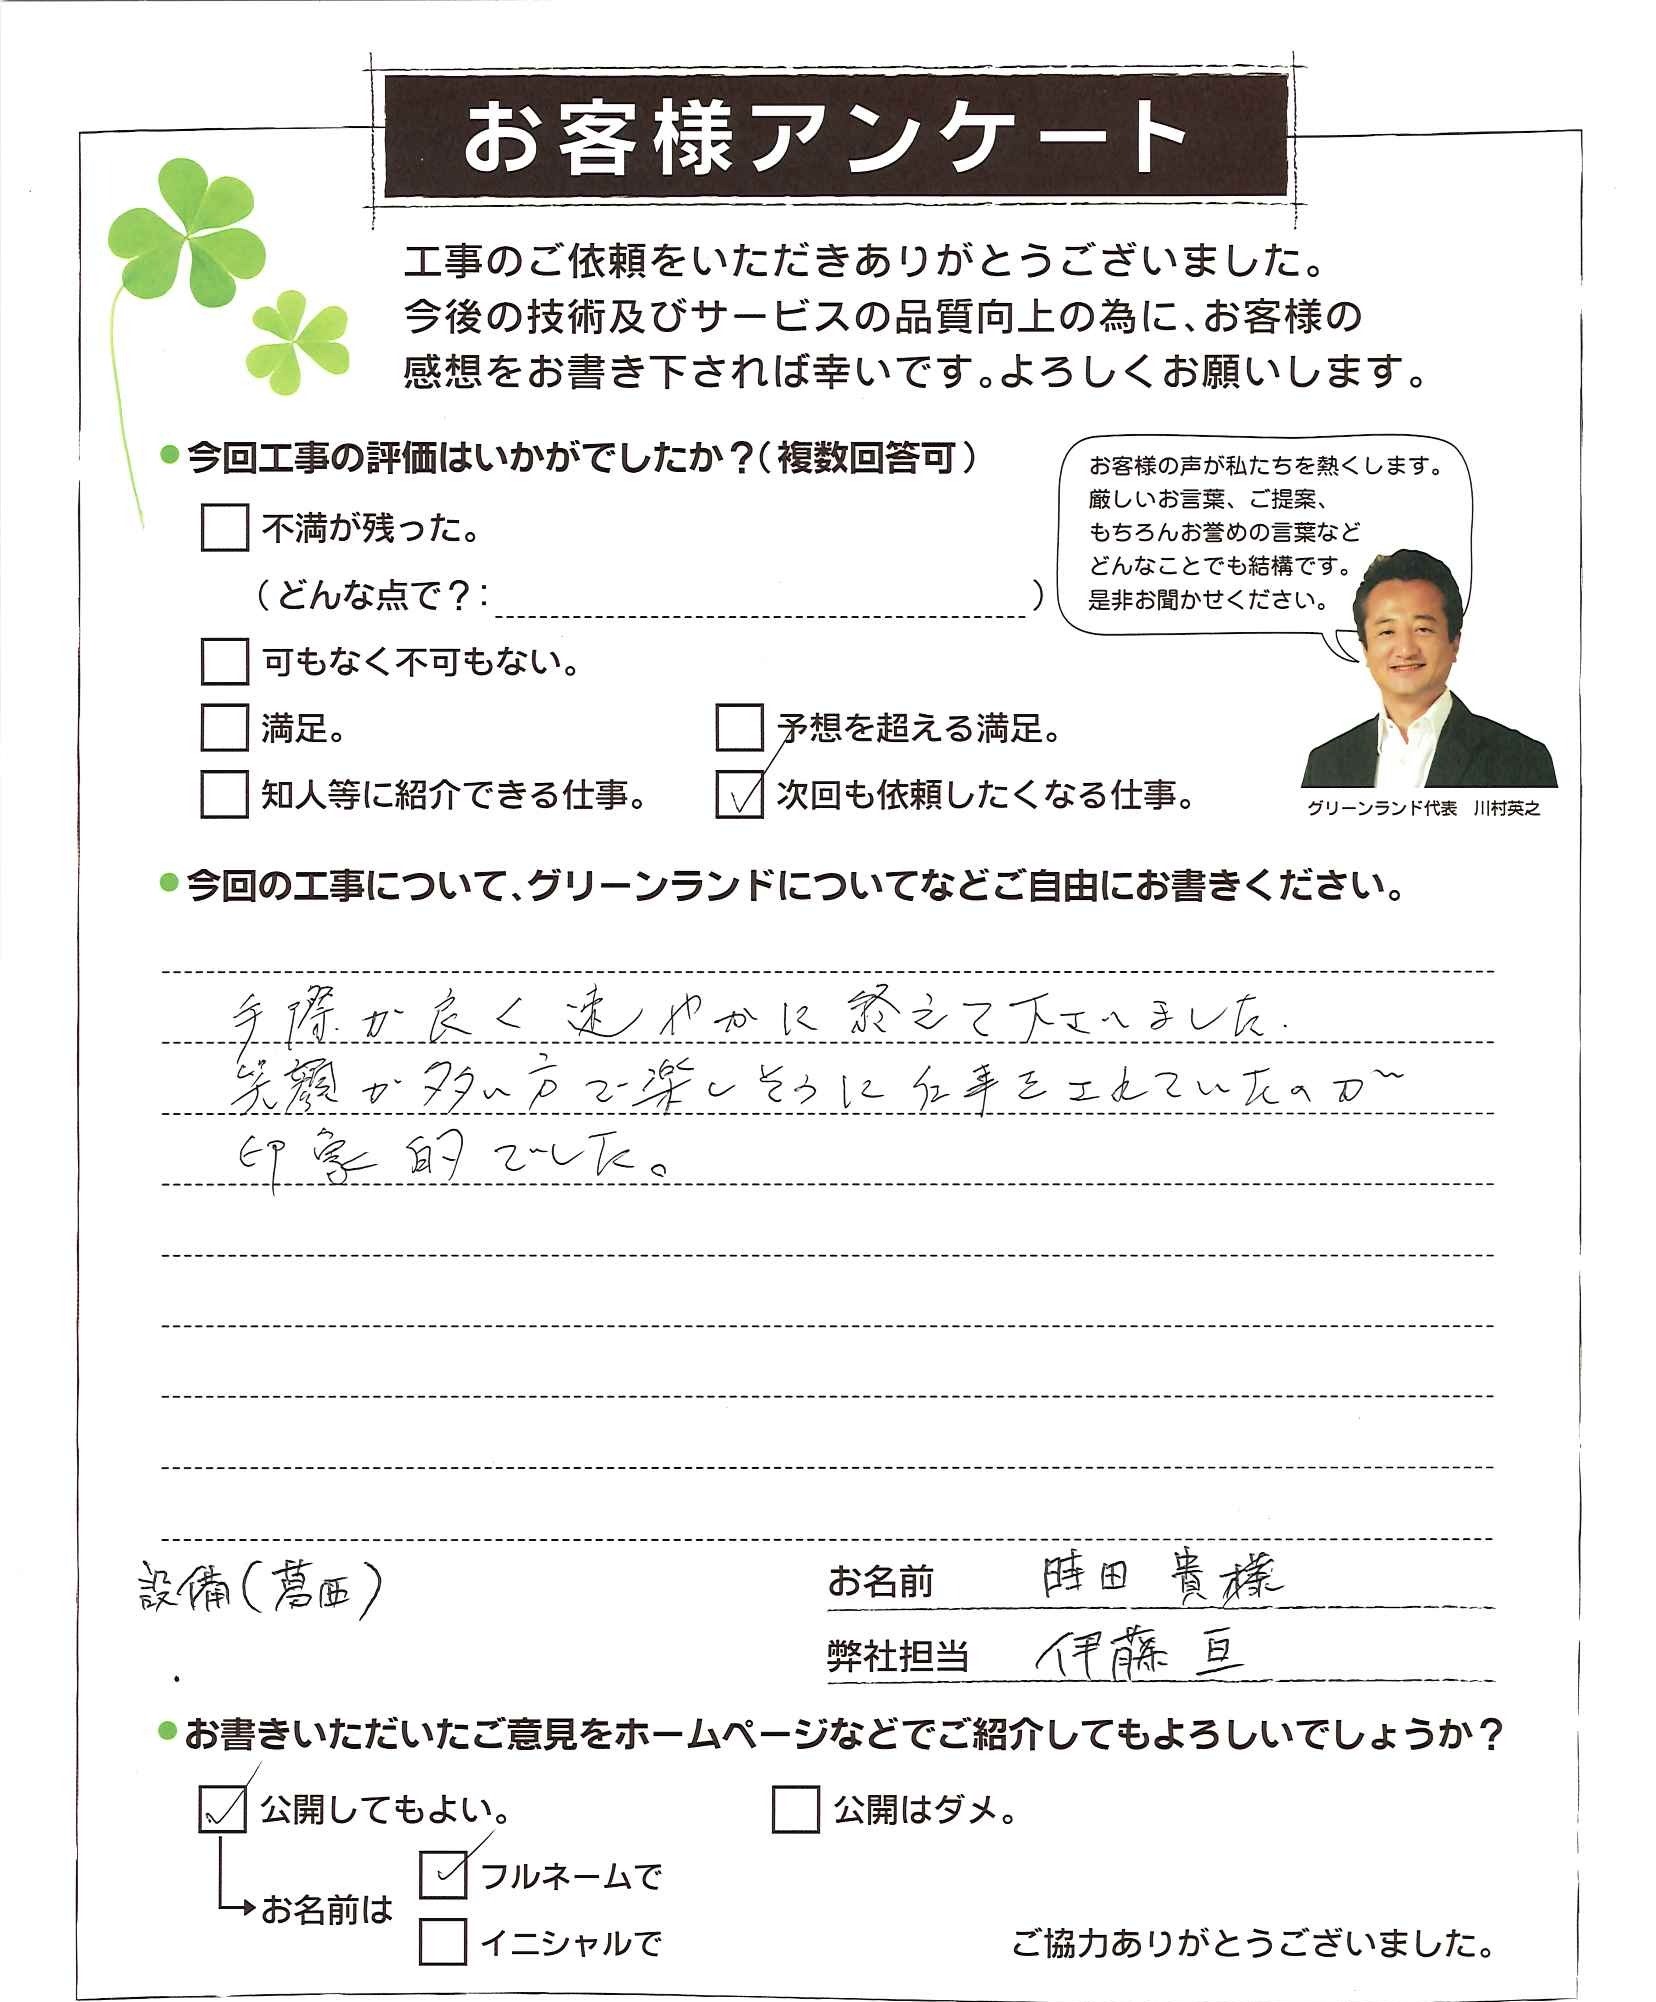 お客様アンケート
工事のご依頼をいただきありがとうございました。
今後の技術及びサービスの品質向上の為に、お客様の
感想をお書き下されば幸いです。よろしくお願いします。
●今回工事の評価はいかがでしたか？（複数回答可）
不満が残った。
（どんな点で？：　）
可もなく不可もない。
満足。
予想を超える満足。
知人等に紹介できる仕事。
次回も依頼したくなる仕事。
お客様の声が私たちを熱くします。
厳しいお言葉、ご提案、
もちろんお誉めの言葉など
どんなことでも結構です。
是非お聞かせください。
グリーンランド代表　川村英之
●今回の工事について、グリーンランドについてなどご自由にお書きください。
手際が良く速やかに終えて下さいました.
笑顔が多い方で楽しそうに仕事をされていたのが
印象的でした。
設備(葛西)
お名前　時田 貴様
弊社担当　伊藤 亘
●お書きいただいたご意見をホームページなどでご紹介してもよろしいでしょうか？
公開してもよい。
公開はダメ。
お名前は
フルネームで
イニシャルで
ご協力ありがとうございました。